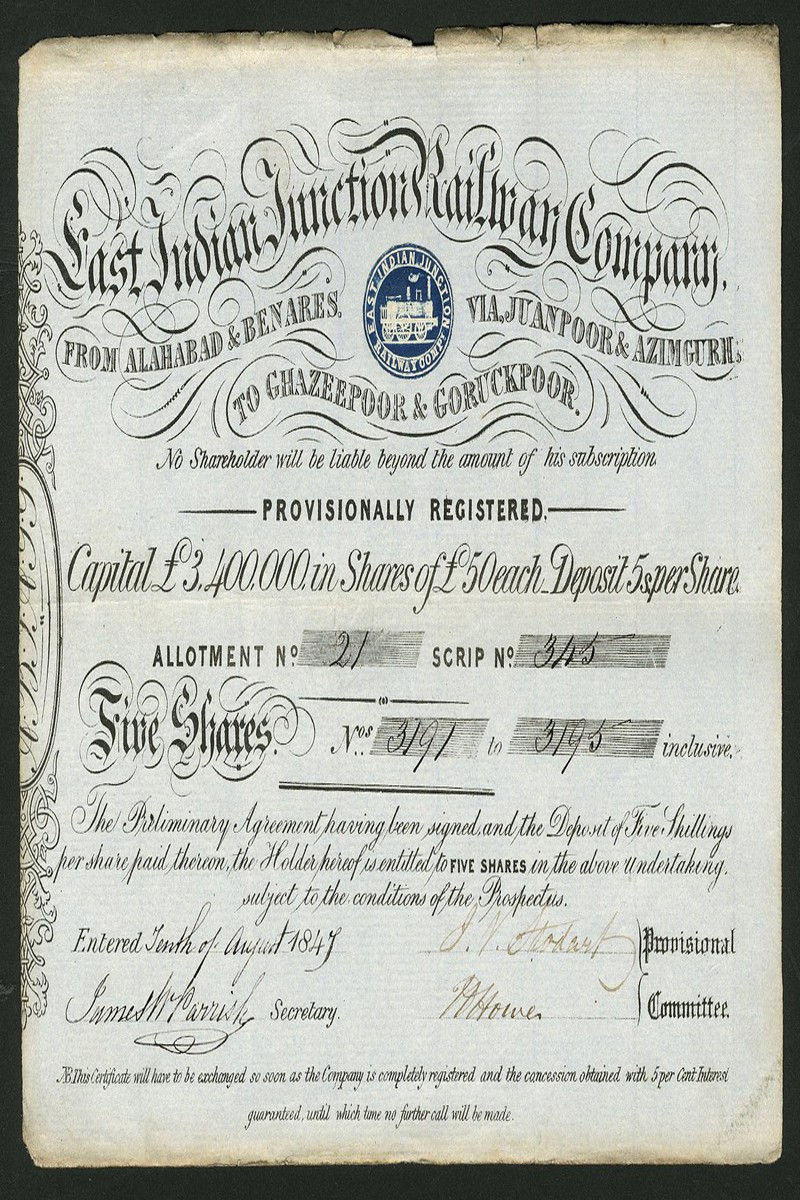 East Indian Junction Railway Company.
EAST INDIAN JUNCTION
RAILWAY COMPY
FROM ALAHABAD & BENARES.
VIA, JUANPOOR & AZIMGURH,
TO GHAZEEPOOR & GORUCKPOOR.
No Shareholder will be liable beyond the amount of his subscription.
PROVISIONALLY REGISTERED.
Capital £3,400,000, in Shares of £50 each_Deposit 5s per Share.
ALLOTMENT No. 21 SCRIP No. 345
Five Shares. Nos. 3191 to 3195 inclusive.
The Preliminary Agreement having been signed, and the Deposit of Five Shillings
per share paid thereon, the Holder hereof is entitled to FIVE SHARES in the above Undertaking,
subject to the conditions of the Prospectus.
Entered Tenth of August 1847
J. V. Stodart
Provisional
James W Parrish Secretary.
Howes
Committee.
NB. This Certificate will have to be exchanged so soon as the Company is completely registered and the concession obtained with 5 per Cent Interest
guaranteed, until which time no further call will be made.